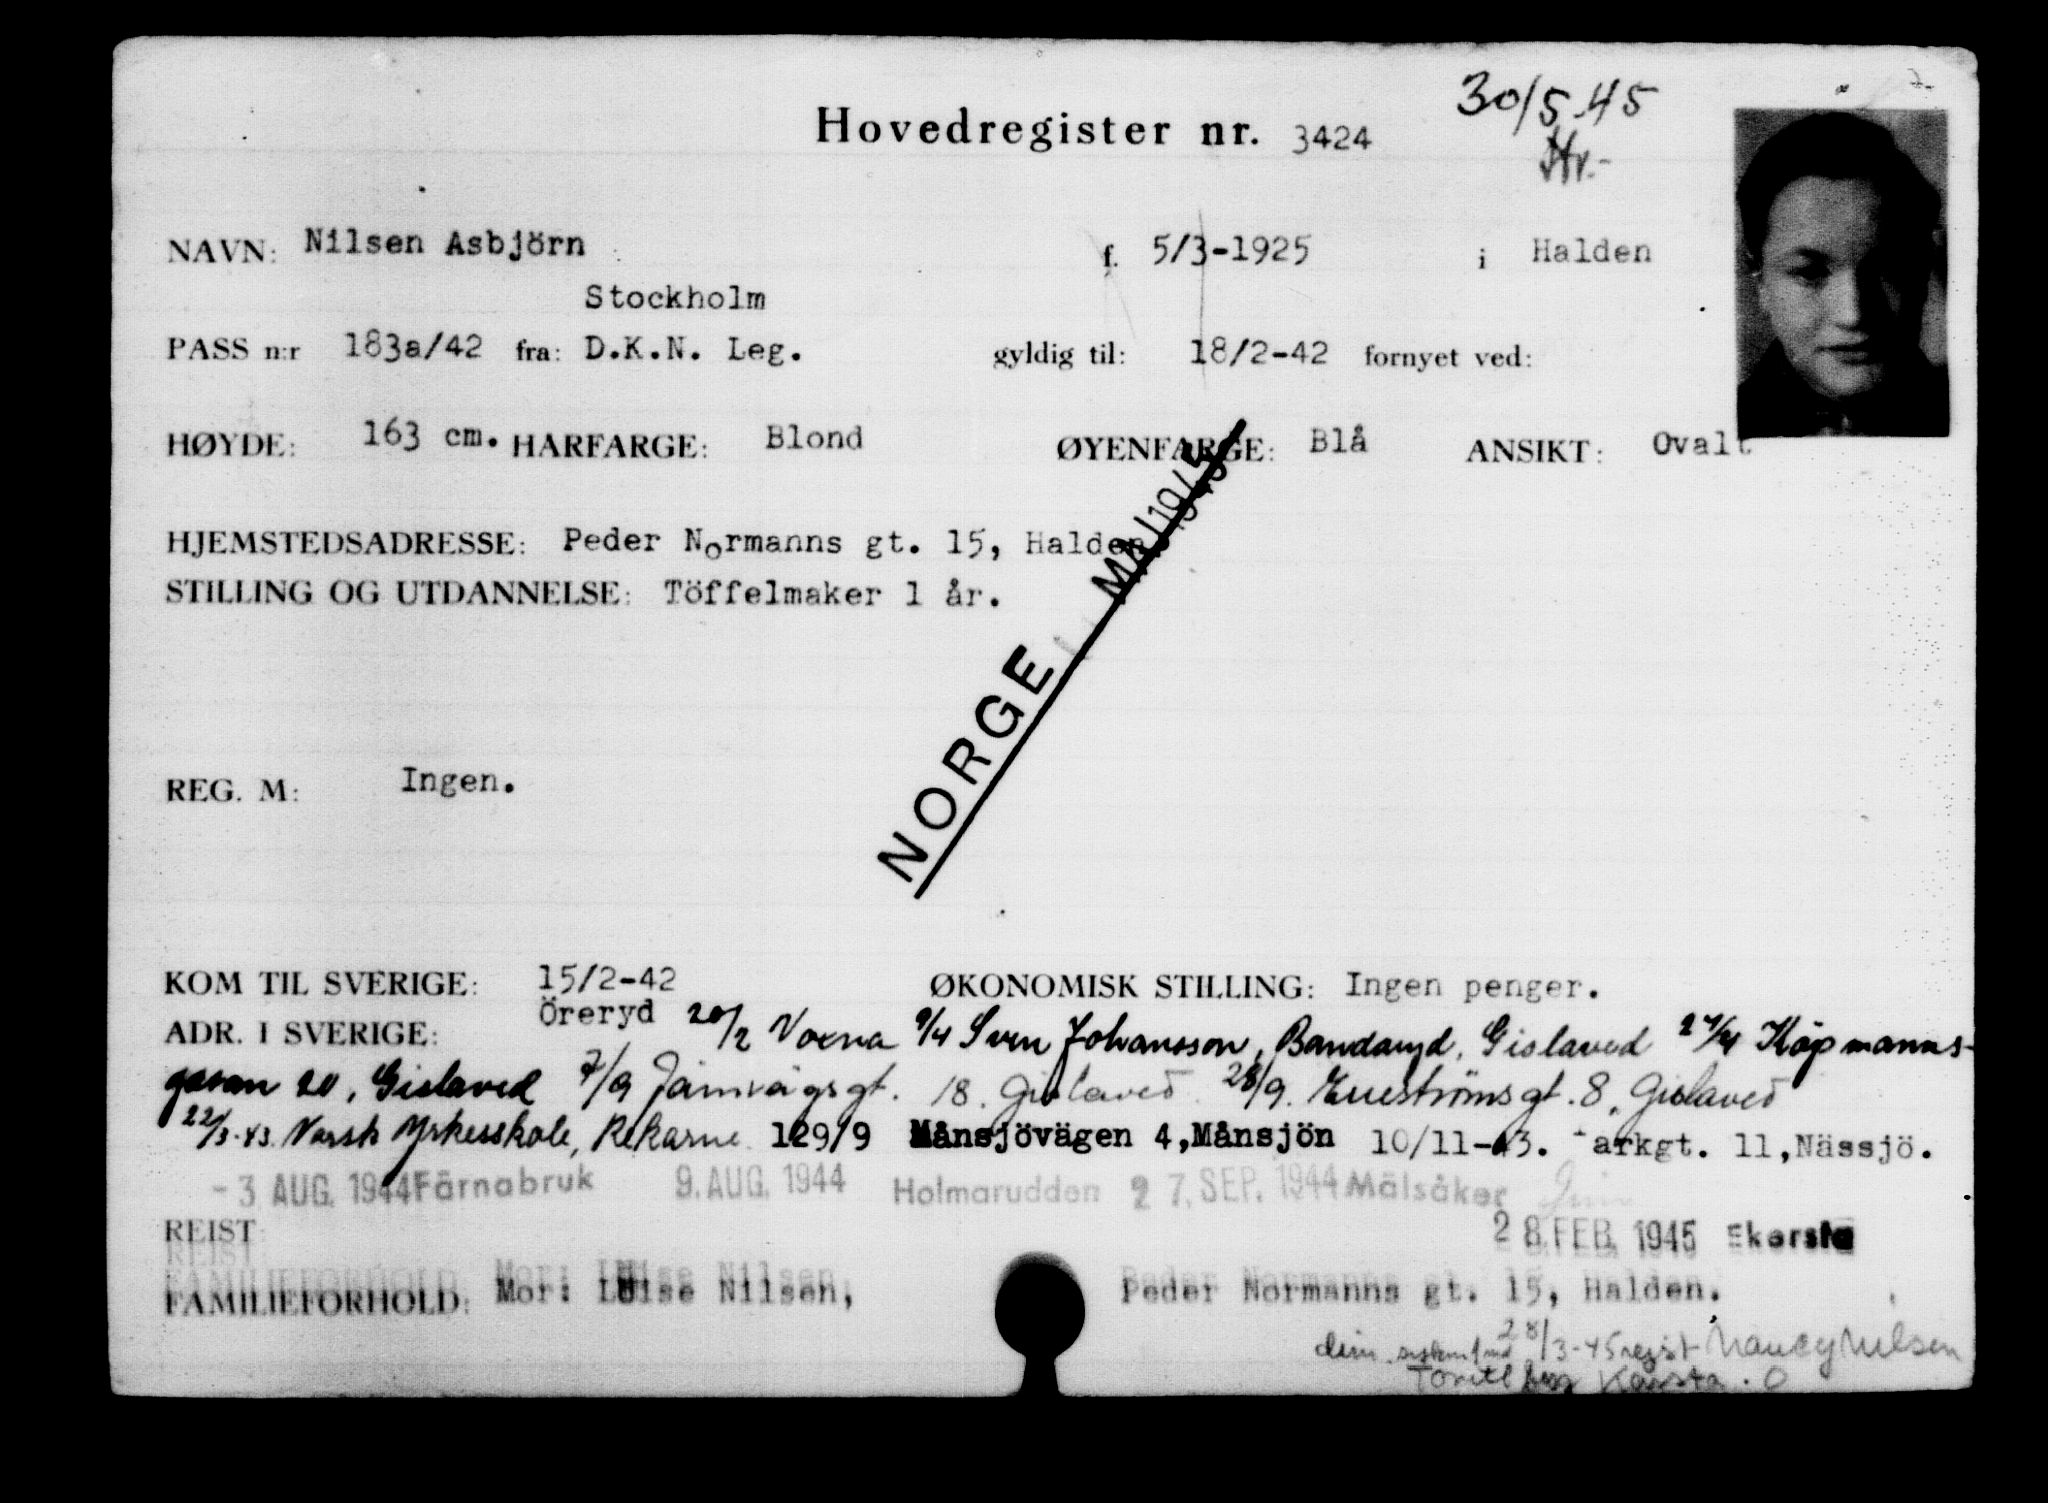 30/5-45
Hovedregister nr. 3424
NAVN: Nilsen Asbjörn f. 5/3-1925 i Halden
Stockholm
PASS n:r 183a/42 fra: D.K.N. Leg. gyldig til: 18/2-42 fornyet ved:
HØYDE: 163 cm. HARFARGE: Blond ØYENFARGE: Blå ANSIKT: Ovalt
HJEMSTEDSADRESSE: Peder Normanns gt. 15, Halden.
STILLING OG UTDANNELSE: Töffelmaker 1 år.
NORGE MAI 1945
REG. M: Ingen.
KOM TIL SVERIGE: 15/2-42 ØKONOMISK STILLING: Ingen penger.
ADR. I SVERIGE: Öreryd 20/2 Voxna 9/4 Sven Johansson, Gislaved 27/4 Köpmanns-
gatan 20, Gislaved 7/9 Järnvägsgt. 18. Gislaved 28/9. gt. 8, Gislaved
22/3-43 Norsk Yrkesskole, Rekarne 129/9 Månsjövägen 4, Månsjön 10/11-43. arkgt. 11, Nässjö.
-3 AUG. 1944 Färnabruk 9. AUG. 1944 Holmarudden 27. SEP. 1944 Mälsåker
REIST 28. FEB. 1945 Ekersta
FAMILIEFORHOLD: Mor: Luise Nilsen, Peder Normanns gt. 15, Halden.
28/3-45 regist Nancy Nilsen